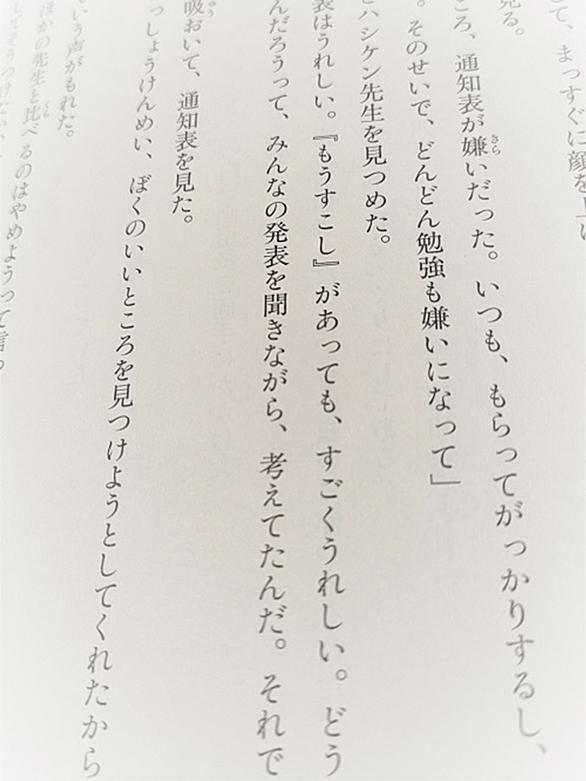 て、まっすぐに顔を上げ
見る。
ころ、通知表が嫌いだった。いつも、もらってがっかりするし、
。そのせいで、どんどん勉強も嫌いになって」
ハシケン先生を見つめた。
表はうれしい。『もうすこし』があっても、すごくうれしい。どう
んだろうって、みんなの発表を聞きながら、考えてたんだ。それで
吸おいて、通知表を見た。
っしょうけんめい、ぼくのいいところを見つけようとしてくれたから
いう声がもれた。
ほかの先生と比べるのはやめようって言